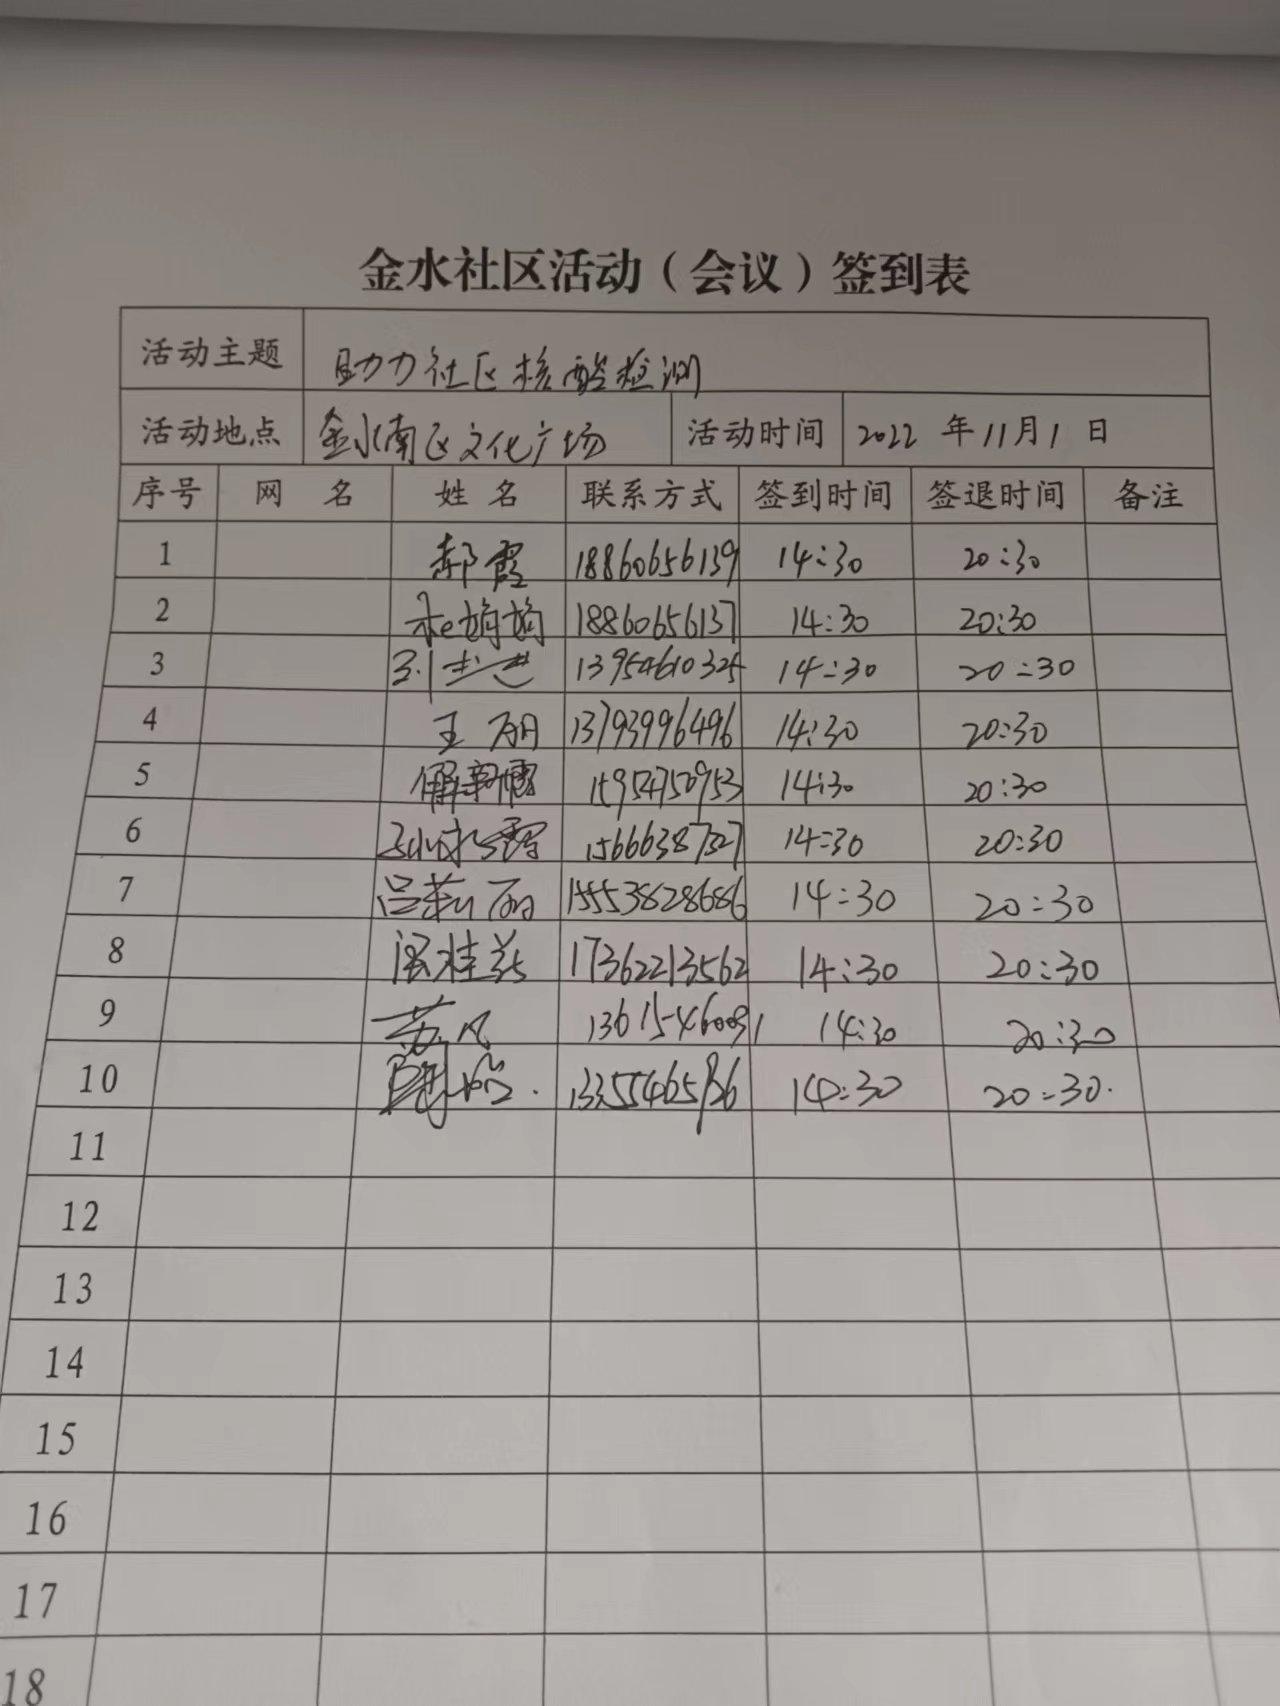 金水社区活动（会议）签到表
活动主题 助力社区核酸检测
活动地点 金水南区文化广场 活动时间 2022 年 11月 1 日
序号 网 名 姓 名 联系方式 签到时间 签退时间 备注
1 郝霞 18860656139 14:30 20:30
2 娟娟 18860656137 14:30 20:30
3 13954610325 14:30 20:30
4 王丽 13793996496 14:30 20:30
5 15954750953 14:30 20:30
6 15666387327 14:30 20:30
7 吕莉丽 15553828686 14:30 20:30
8 17362213562 14:30 20:30
9 苏凡 14:30 20:30
10 14:30 20:30.
11
12
13
14
15
16
17
18